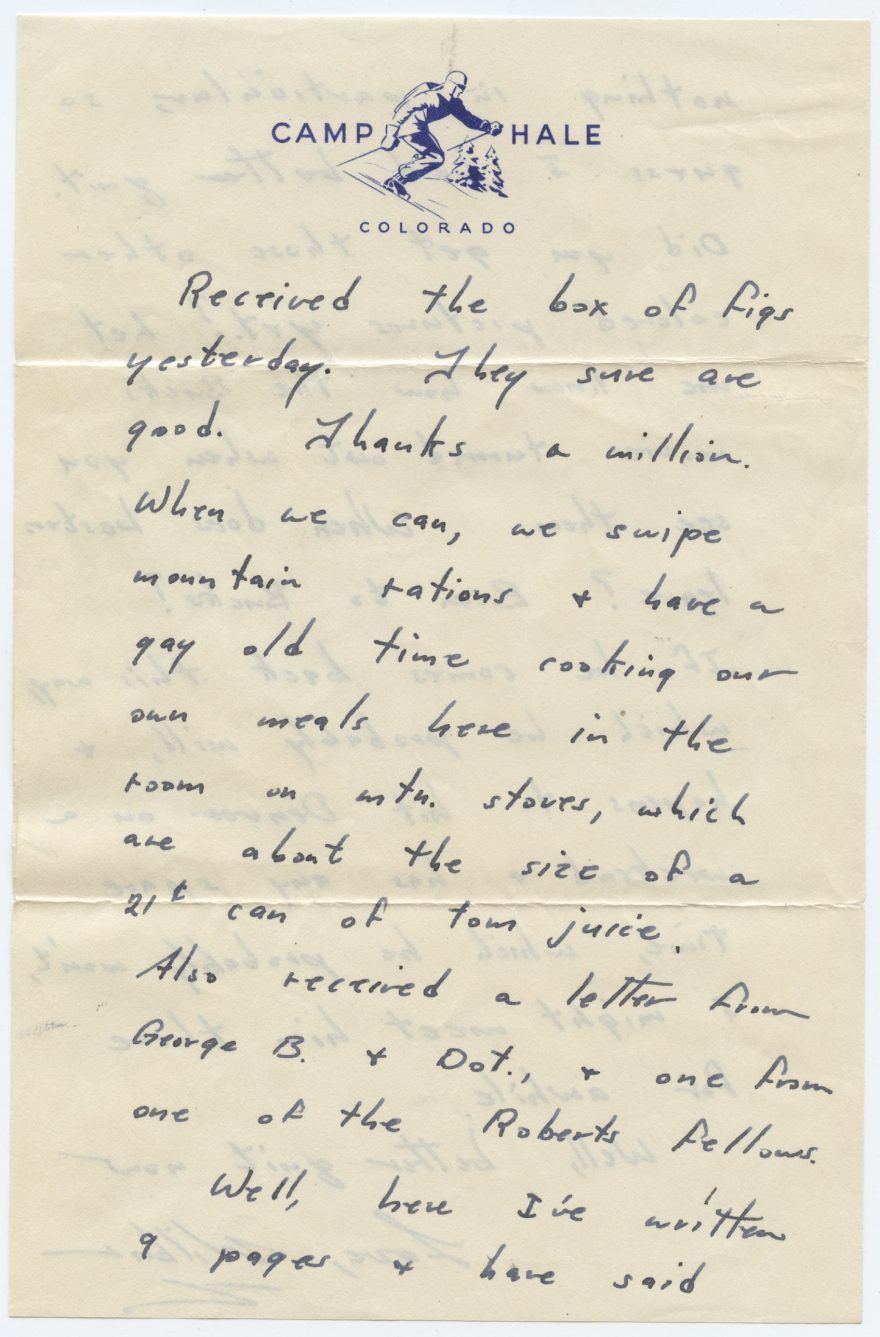 CAMP HALE
COLORADO
Received the box of figs
yesterday. They sure are
good. Thanks a million.
When we can, we swipe
mountain rations + have a
gay old time cooking our
own meals here in the
room on mtn. stoves, which
are about the size of a
21¢ can of tom juice.
Also received a letter from
George B. + Dot., + one from
one of the Roberts fellows.
Well, here I've written
9 pages + have said